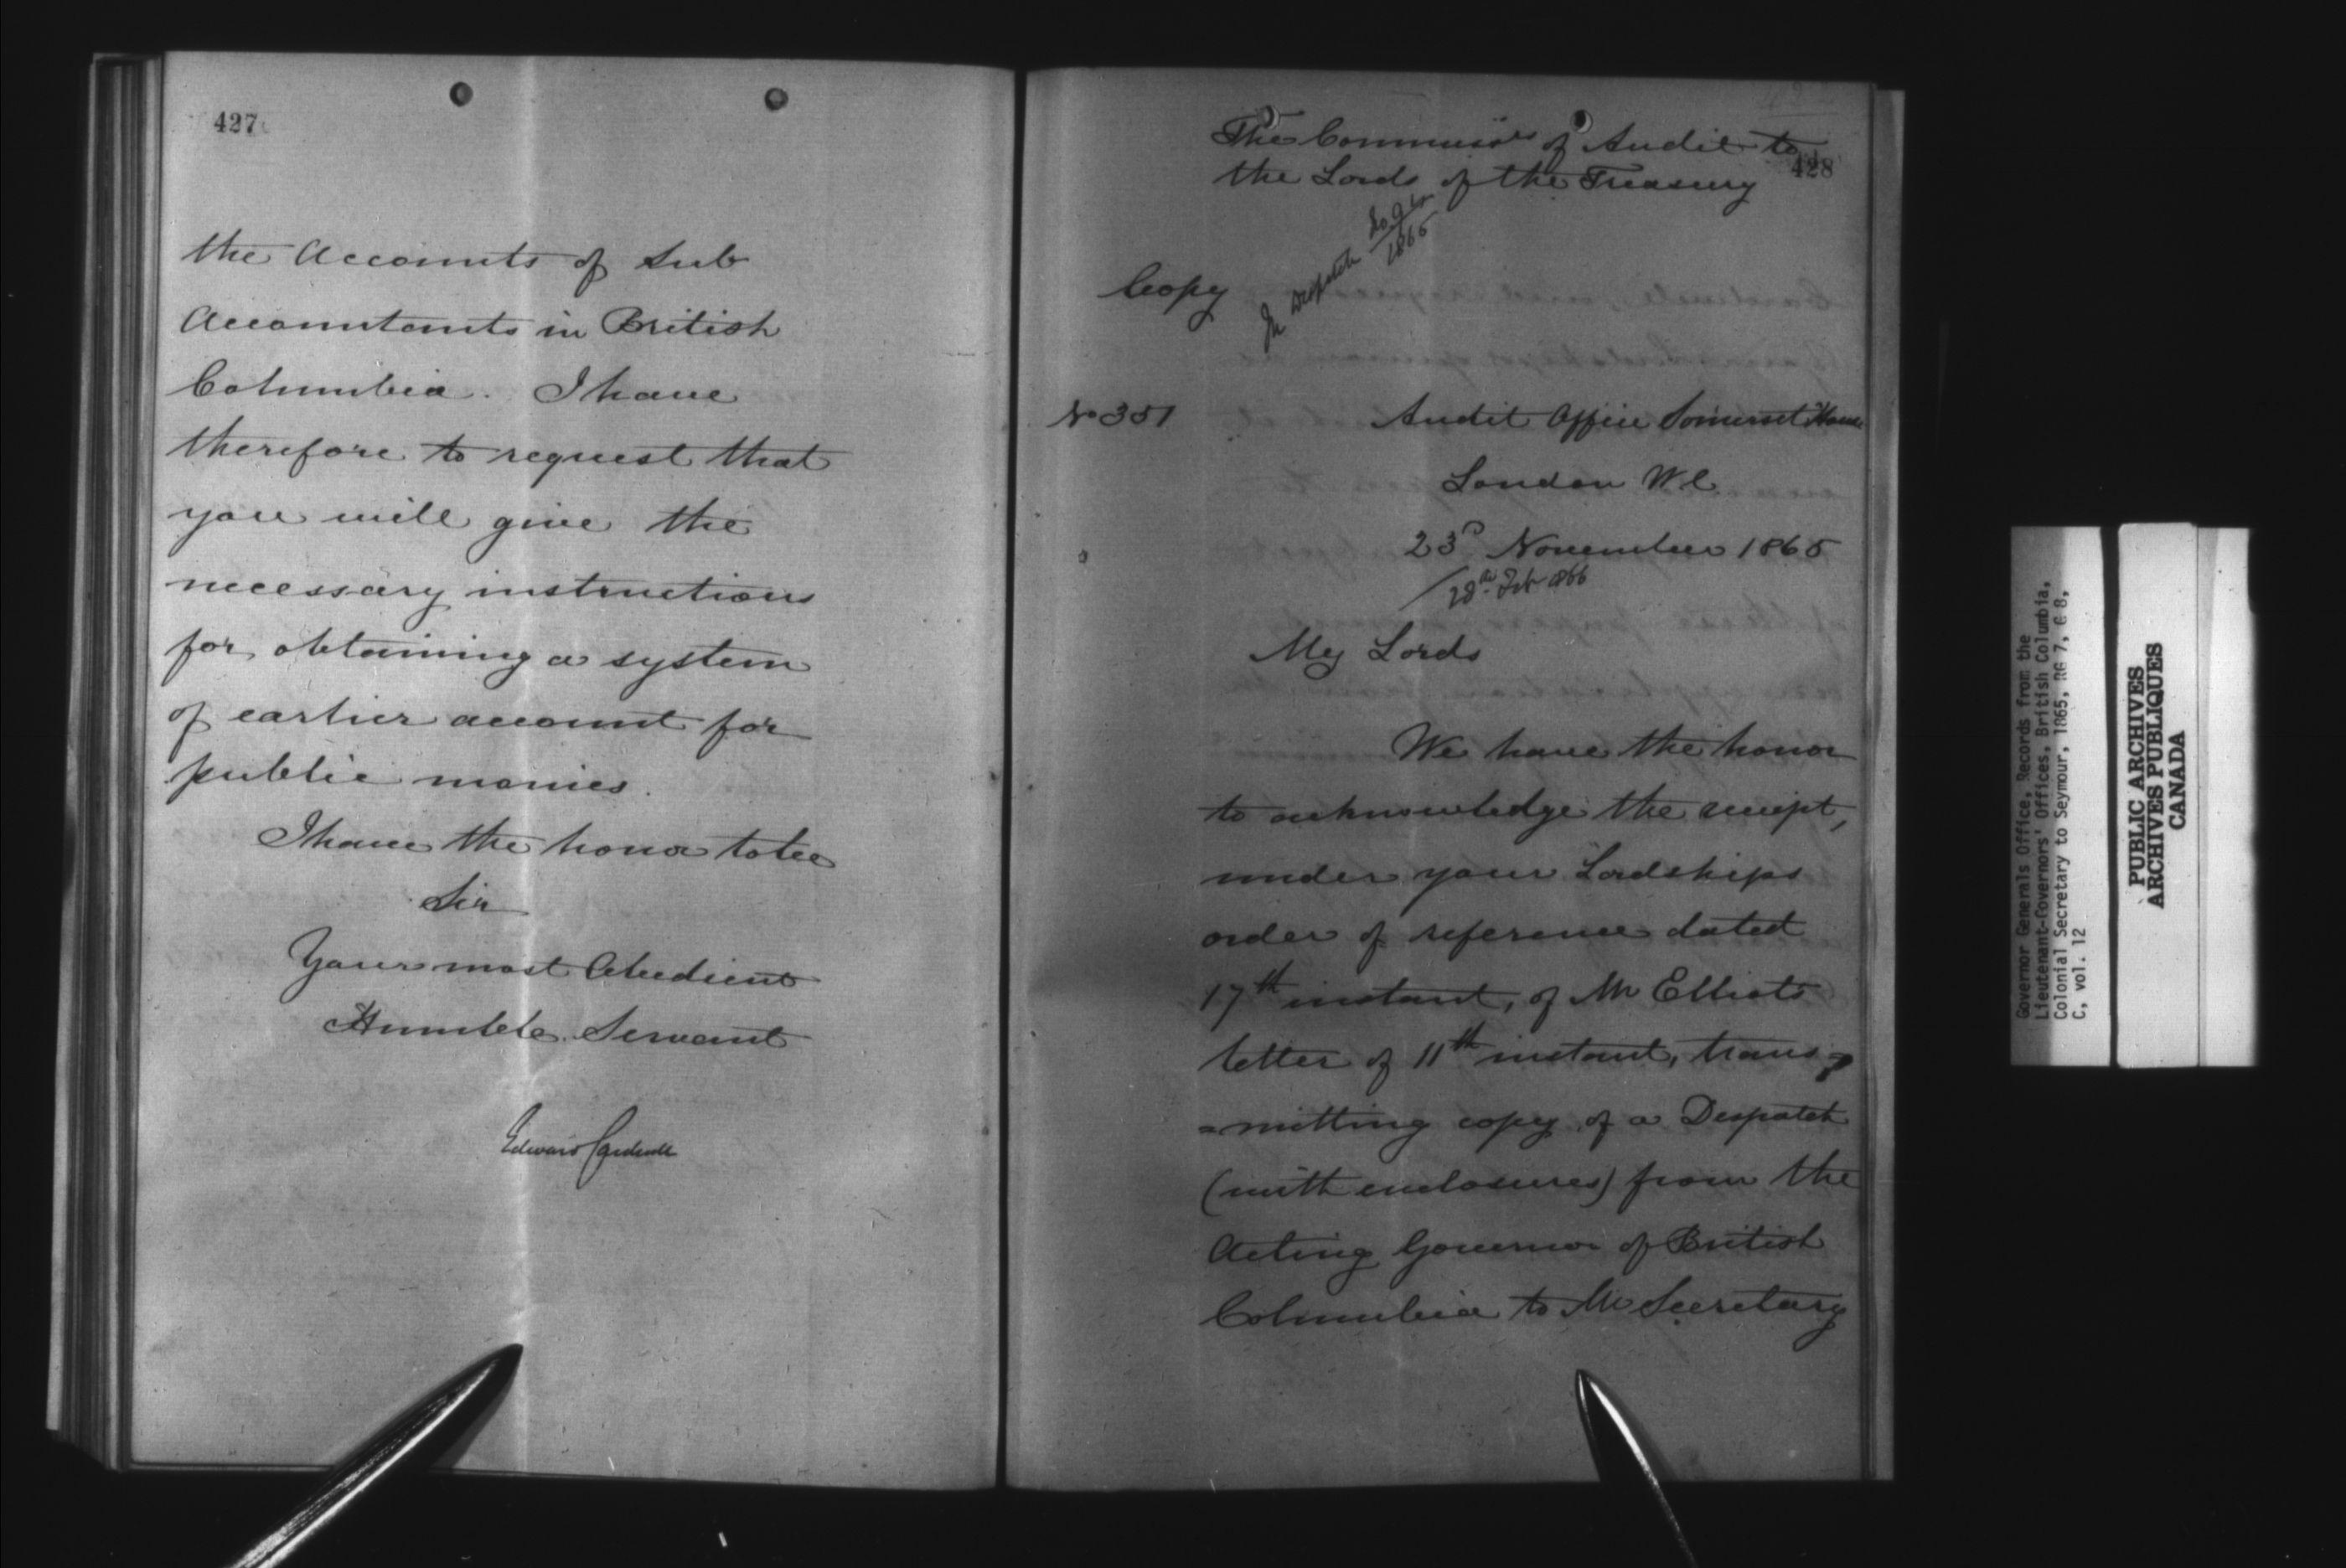 427
the Accounts of Sub
Accountants in British
Columbia. I have
therefore to request that
you will give the
necessary instructions
for obtaining a system
of earlier account for
public monies.
I have the honor to be
Sir
Your most Obedient
Humble Servant
Edward Cardwell
The Commissrs of Audit to
the Lords of the Treasury
428
Copy
In Despatch
1865
No 351
Audit Office Somerset House
London W.C.
23d November 1865
/28th Feb 1866
My Lords
We have the honor
to acknowledge the receipt,
under your Lordships
order of reference dated
17th instant, of Mr Elliots
letter of 11th instant, trans=
=mitting copy of a Despatch
(with enclosures) from the
Acting Governor of British
Columbia to Mr Secretary
Governor Generals Office, Records from the
Lieutenant-Governors' Offices, British Columbia,
Colonial Secretary to Seymour, 1865, RG 7, G 8,
C, vol. 12
PUBLIC ARCHIVES
ARCHIVES PUBLIQUES
CANADA